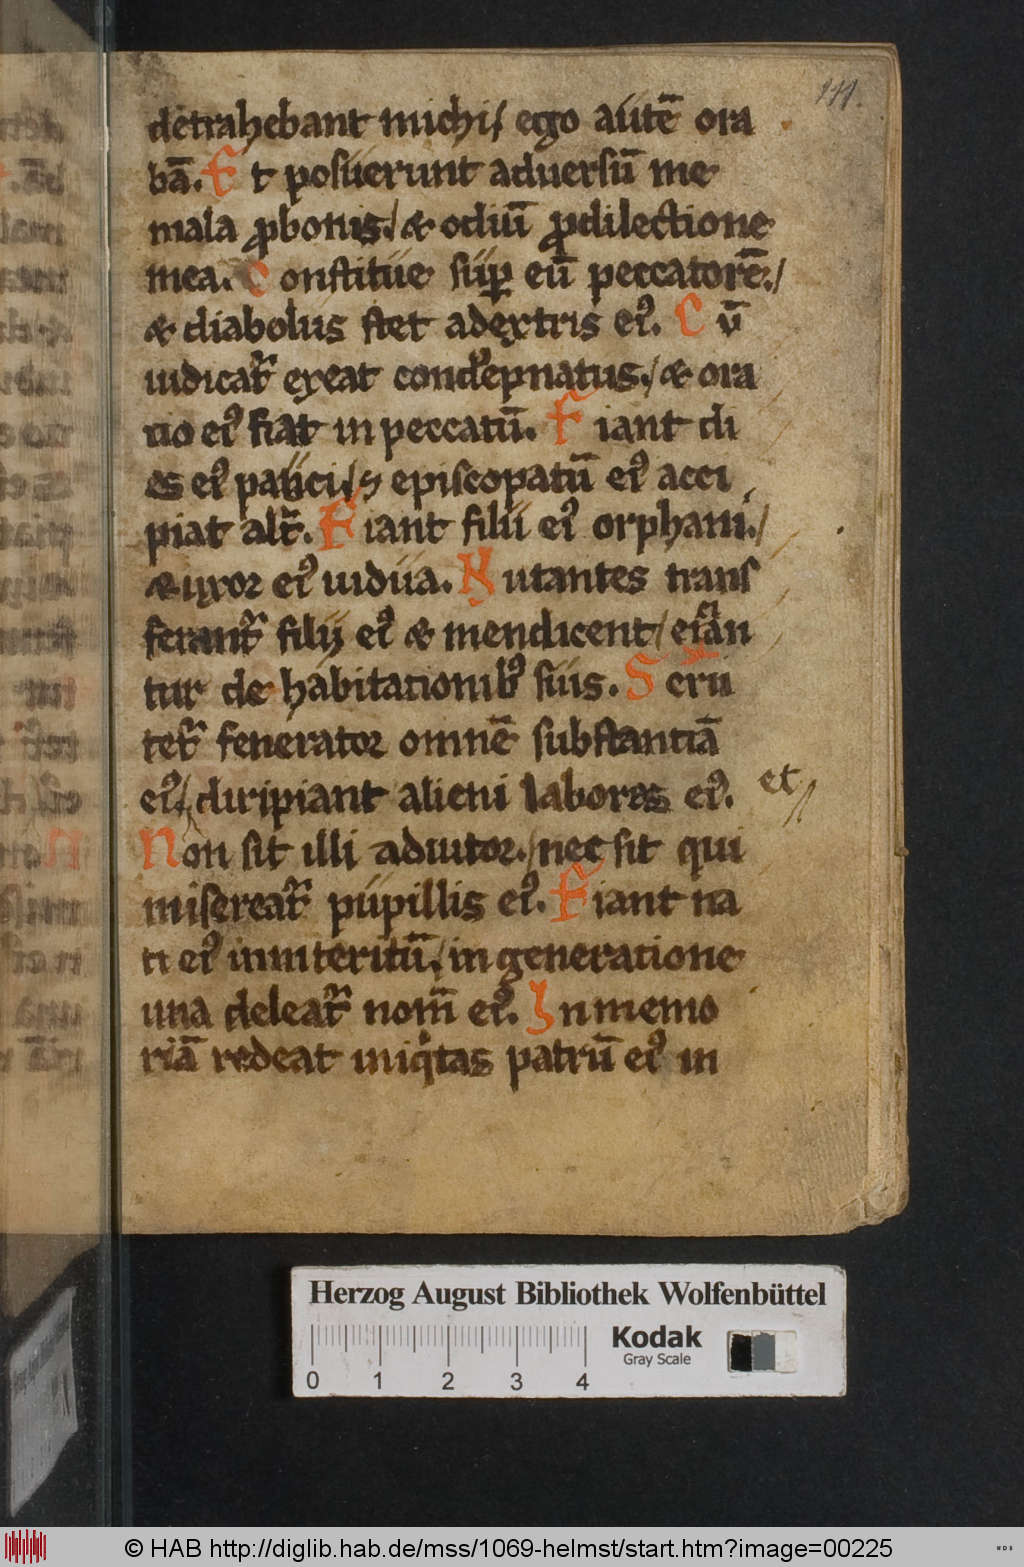 111.
detrahebant michi/ ego autē ora
bā. Et posuerunt aduersū me
mala ꝓbonis./ & odiū ꝓdilectione
mea. Constitue suꝑ eū peccatorē./
& diabolus stet adextris eiꝰ. Cū
iudicat᷑ exeat condepnatus./ & ora
tio eiꝰ fiat in peccatū. Fiant di
es eiꝰ pauci/ ⁊ episcopatū eiꝰ acci
piat alt᷑. Fiant filii eiꝰ orphani./
& uxor eiꝰ uidua. Nutantes trans
ferant᷑ filij eiꝰ & mendicent/ eician
tur de habitationibꝰ suis. Scru
tet᷑ fenerator omnē substantiā
eiꝰ/ diripiant alieni labores eiꝰ. et
Non sit illi adiutor./ nec sit qui
misereat᷑ pupillis eiꝰ. Fiant na
ti eiꝰ in interitū./ in generatione
una deleat᷑ nom̄ eiꝰ. In memo
riā redeat iniqͥtas patrū eiꝰ in
Herzog August Bibliothek Wolfenbüttel
Kodak
Gray Scale
0 1 2 3 4
© HAB http://diglib.hab.de/mss/1069-helmst/start.htm?image=00225